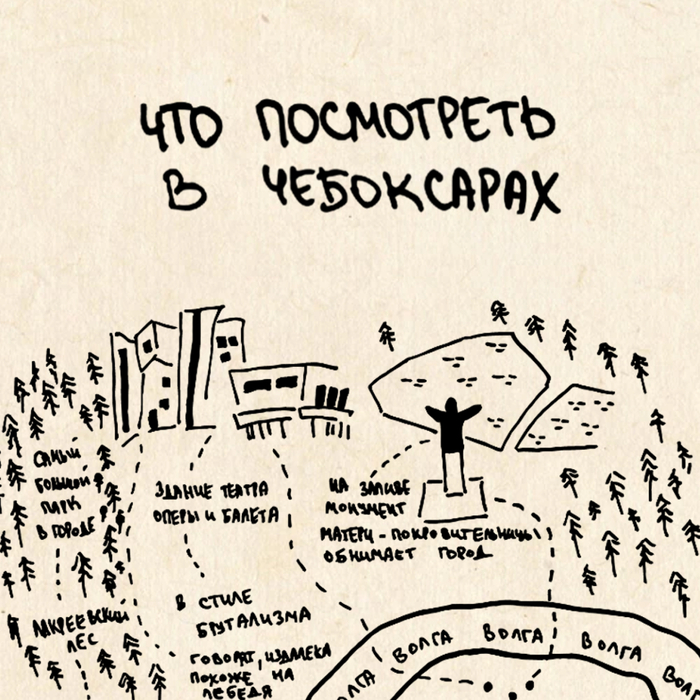 ЧТО ПОСМОТРЕТЬ
В ЧЕБОКСАРАХ
САМЫЙ
БОЛЬШОЙ
ПАРК
В ГОРОДЕ
ЛАКРЕЕВСКИЙ
ЛЕС
ЗДАНИЕ ТЕАТРА
ОПЕРЫ И БАЛЕТА
В СТИЛЕ
БРУТАЛИЗМА
ГОВОРЯТ, ИЗДАЛЕКА
ПОХОЖЕ НА
ЛЕБЕДЯ
НА ЗАЛИВЕ
МОНУМЕНТ
МАТЕРИ-ПОКРОВИТЕЛЬНИЦЫ
ОБНИМАЕТ ГОРОД
ОЛГА ВОЛГА ВОЛГА ВОЛГА ВО